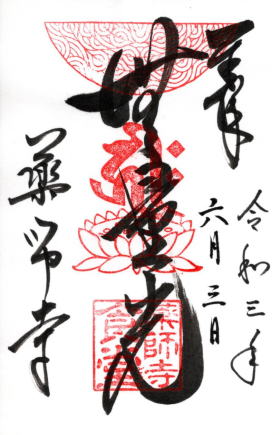 奉拝
令和三年
六月三日
無量光
薬師寺
薬師寺
食堂